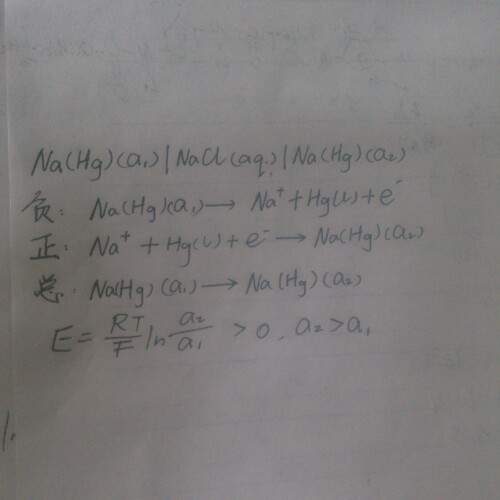 Na(Hg)(a₁)|NaCl(aq.)|Na(Hg)(a₂)
负: Na(Hg)(a₁)→ Na⁺+Hg(l)+e⁻
正: Na⁺+Hg(l)+e⁻→Na(Hg)(a₂)
总: Na(Hg)(a₁)→Na(Hg)(a₂)
E=RT/F ln a₂/a₁ >0, a₂>a₁